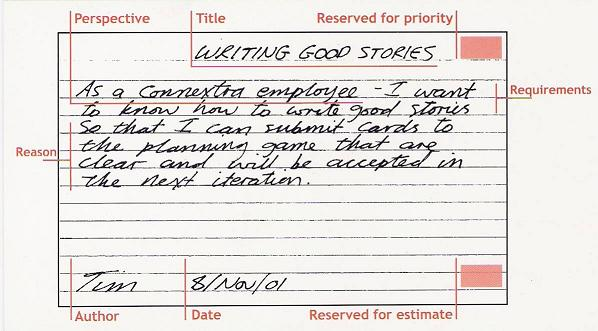 Perspective Title Reserved for priority
WRITING GOOD STORIES
As a Connextra employee - I want
to know how to write good stories
Requirements
So that I can submit cards to
the planning game that are
Reason
clear and will be accepted in
the next iteration.
Tim 8/Nov/01
Author Date Reserved for estimate